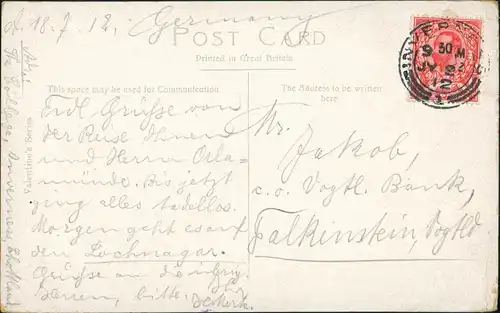 d. 18.7.12. Germany
POST CARD
Printed in Great Britain
This space may be used for Communication
The Address to be written here
Frdl. Grüße von
der Reise Ihnen
und Herrn Orla-
münde. Bis jetzt
ging alles tadellos.
Morgen geht es auf
den Lochnagar.
Grüße an die übrig.
Herren, bitte.
Mr.
Jakob,
c. o. Vogtl. Bank,
Falkinstein, Vogtld
Valentine's Series
The College, Inverness Schottland
INVERNESS
9 30 M
JY 12
1